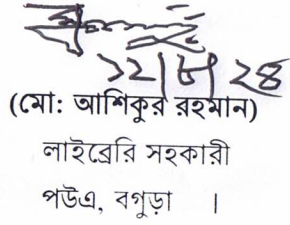 ১২|৮|২৪
(মো: আশিকুর রহমান)
লাইব্রেরি সহকারী
পউএ, বগুড়া ।